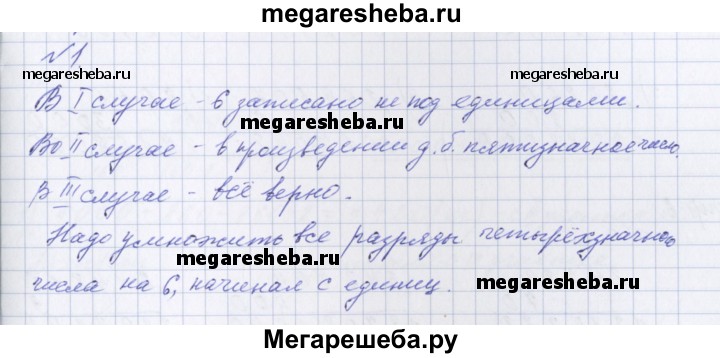 megaresheba.ru
№1
megaresheba.ru megaresheba.ru
В I случае - 6 записано не под единицами.
megaresheba.ru
Во II случае - в произведении д. б. пятизначное число.
В III случае - всё верно.
megaresheba.ru megaresheba.ru
Надо умножить все разряды четырёхзначного
числа на 6, начиная с единиц.
megaresheba.ru
Мегарешеба.ру